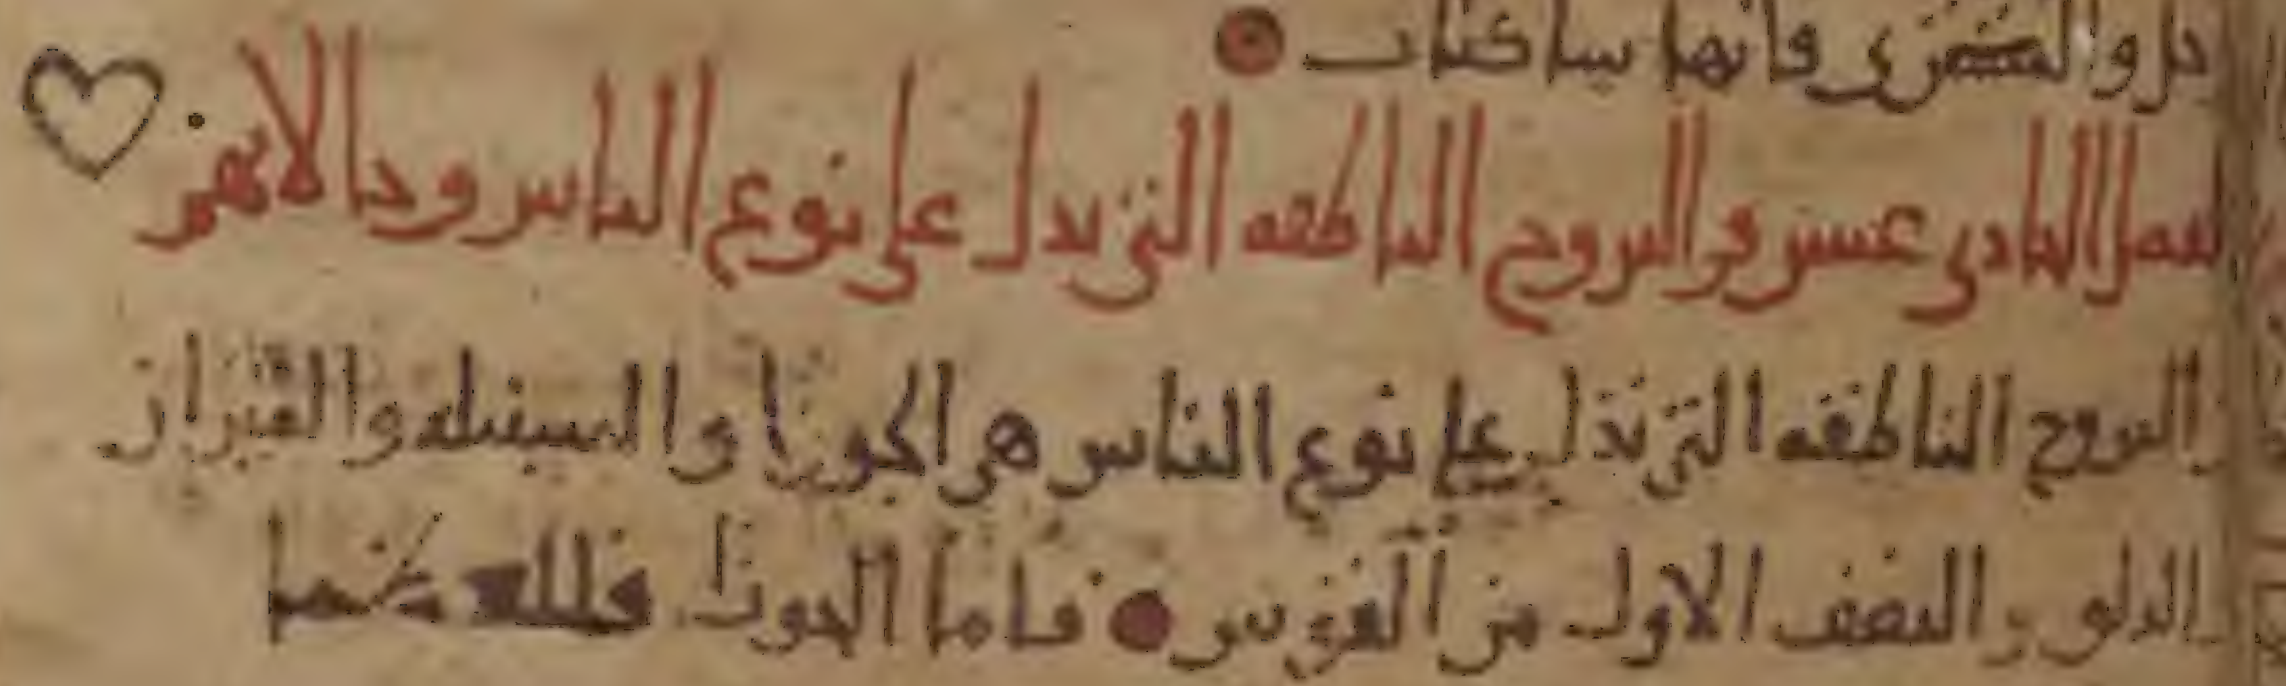 والمشتري فانها ساكتات
الفصل الحادي عشر في البروج الناطقه التي تدل على نوع الناس وحالاتهم
البروج الناطقه التي تدل على نوع الناس هي الجوزا والسنبله والميزان
الدلو والنصف الاول من القوس فاما الجوزا